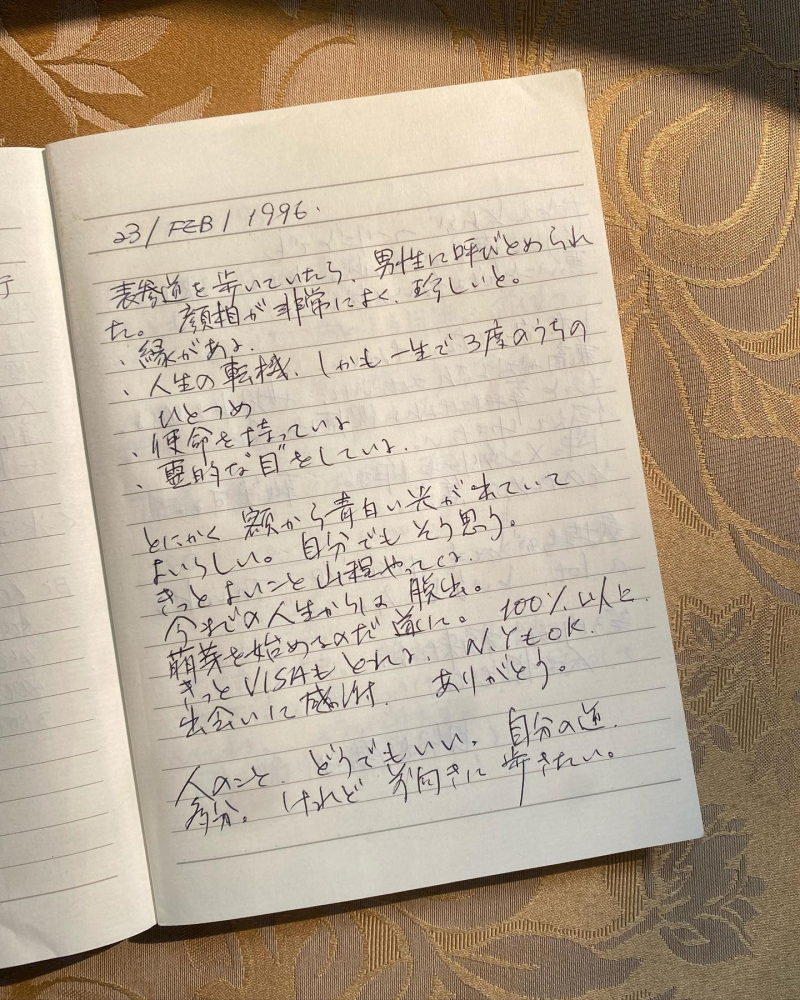 23/FEB/1996.
表参道を歩いていたら、男性に呼びとめられ
た。顔相が非常によく、珍しいと。
、縁がある。
、人生の転機、しかも一生で3度のうちの
ひとつめ
、使命を持っている
、霊的な"目"をしている.
とにかく額から青白い光が出ていて
よいらしい。自分でもそう思う。
きっとよいこと山程やってくる.
今までの人生からは脱出。
萌芽を始めるのだ 100%以上
きっとVISAもとれる. N.YもOK.
出会いに感謝. ありがとう。
人のこと. どうでもいい. 自分の道.
多分。けれど 前向きに歩きたい。
行